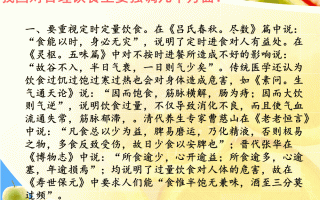 我国对合理饮食主要强调几个方面：
一、要重视定时定量饮食。在《吕氏春秋。尽数》篇中说：
“食能以时，身必无灾”，说明了定时进食对人有益处。在
《灵枢。五味篇》中对不按时进餐所造成不好的影响说：
“故谷不入，半日气衰，一日则气少矣”。传统医近还认为
饮食过饥过饱过寒过热也会对身体造成危害，如《素问。生
气通天论》说：“因而饱食，筋脉横解，肠为痔；因而大饮
则气逆”，说明饮食过量，不仅导致消化不良，而且使气血
流通失常，筋脉郁滞，。清代养生专家曹慈山在《老老恒言》
中说：“凡食总以少为益，脾易磨运，乃化精液，否则极易
之物，多食反致受伤，故曰少食以安脾也”；晋代张华在
《博物志》中说：“所食逾少，心开逾益；所食逾多，心逾
塞，年逾损焉”；均说明了过量饮食对人体的危害，故在
《寿世保元》中要求人们能“食惟半饱无兼味，酒至三分莫
过频”。